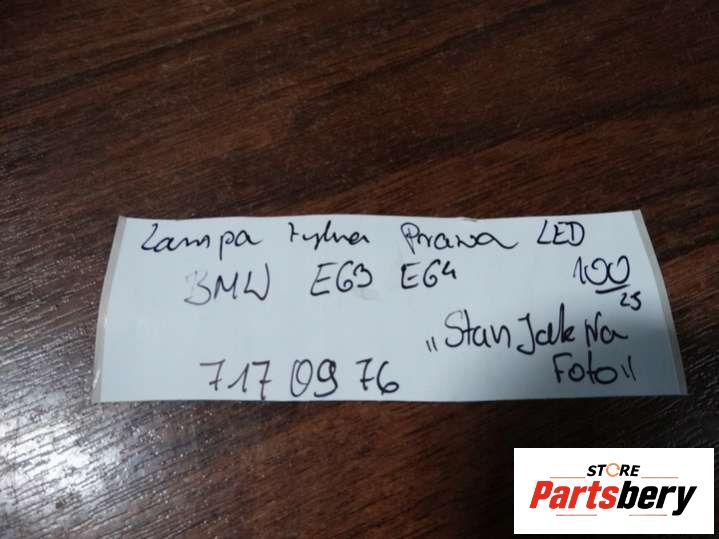 Lampa tylna Prawa LED
BMW E63 E64 100
25
"Stan Jak Na
717 09 76 Foto"
STORE
Partsbery